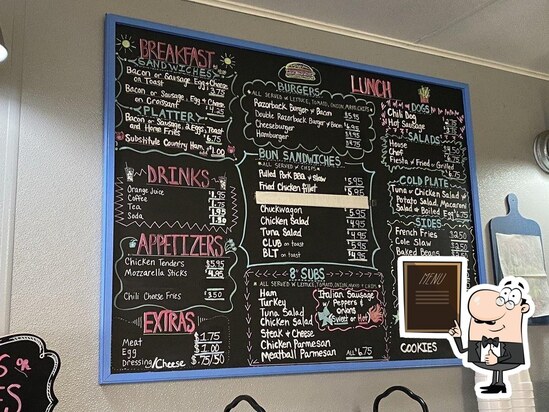 BREAKFAST
SANDWICHES
Bacon or Sausage, Egg + Cheese
on Toast 3.75
Bacon or Sausage, Egg + Cheese
on Croissant 4.25
PLATTERS
Bacon or Sausage, 2 Eggs, Toast
and Home Fries 6.75
Substitute Country Ham, add 1.00
DRINKS
Orange Juice
Coffee
Tea
Soda
APPETIZERS
Chicken Tenders $5.95
Mozzarella Sticks
Chili Cheese Fries $3.50
EXTRAS
Meat $1.75
Egg $1.00
Dressing/Cheese $.75/50
LUNCH
BURGERS
ALL SERVED W LETTUCE, TOMATO, ONION, MAYO, CHIPS
Razorback Burger w Bacon
Double Razorback Burger w Bacon
Cheeseburger
Hamburger
BUN SANDWICHES
ALL SERVED w CHIPS
Pulled Pork BBQ w Slaw $5.95
Fried Chicken fillet $5.95
Chuckwagon $5.95
Chicken Salad $4.95
Tuna Salad $4.95
CLUB on toast
BLT on toast
8" SUBS
ALL SERVED W LETTUCE, TOMATO, ONION, MAYO + CHIPS
Ham
Turkey
Tuna Salad
Chicken Salad
Steak + Cheese
Chicken Parmesan
Meatball Parmesan ALL $6.75
Italian Sausage
Peppers &
Onions
Sweet or Hot
DOGS
Chili Dog
Hot Sausage
SALADS
House
Chef
Fiesta w Fried or Grilled
COLD PLATE
Tuna or Chicken Salad w
Potato Salad, Macaroni
Salad or Boiled Egg $6.75
SIDES
French Fries $2.50
Cole Slaw
Baked Beans
COOKIES
MENU